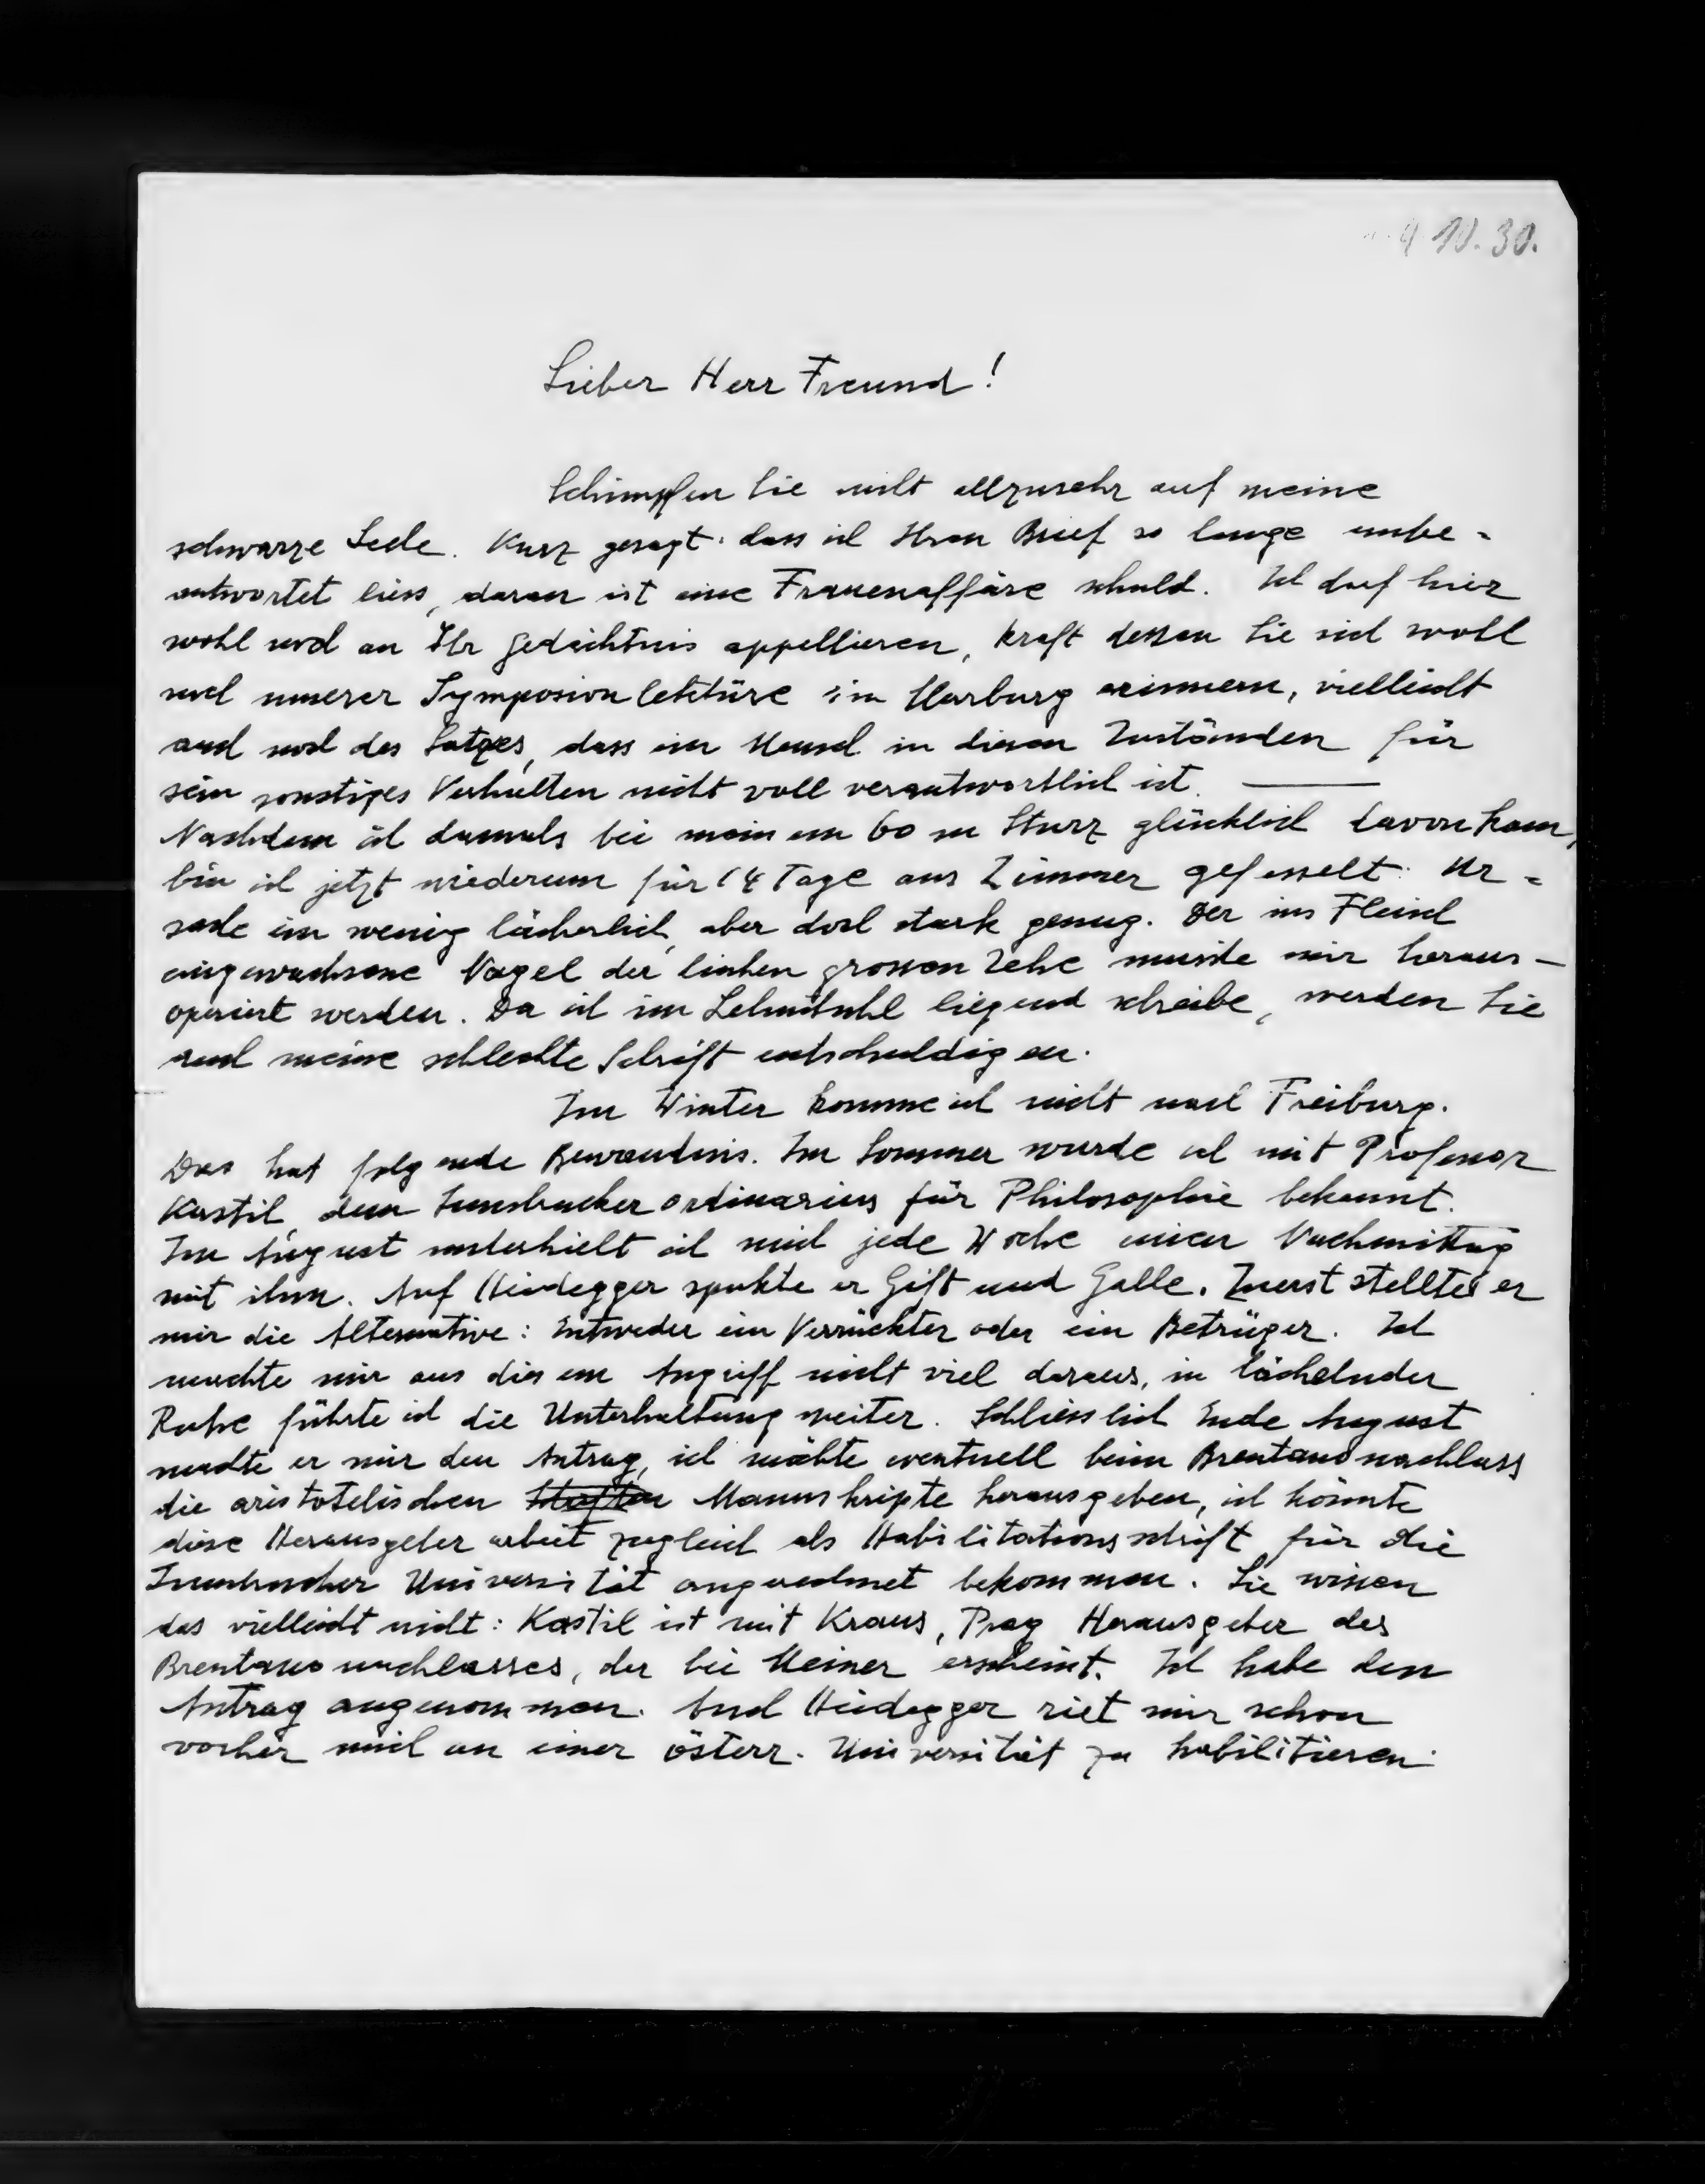 9 10. 30.
Lieber Herr Freund!
Schimpfen Sie nicht allzusehr auf meine
schwarze Seele. Kurz gesagt: dass ich Ihren Brief so lange unbe-
antwortet liess, daran ist eine Frauenaffäre schuld. Ich darf hier
wohl noch an Ihr Gedächtnis appellieren, kraft dessen Sie sich wohl
noch unserer Symposionlektüre in Marburg erinnern, vielleicht
auch noch des Satzes, dass ein Mensch in diesen Zuständen für
sein sonstiges Verhalten nicht voll verantwortlich ist. —
Nachdem ich damals bei meinem 60 m Sturz glücklich davonkam,
bin ich jetzt wiederum für 14 Tage ans Zimmer gefesselt: Ur-
sache ein wenig lächerlich, aber doch stark genug. Der ins Fleisch
eingewachsene Nagel der linken grossen Zehe musste mir heraus-
operiert werden. Da ich im Lehnstuhl liegend schreibe, werden Sie
auch meine schlechte Schrift entschuldigen.
Im Winter komme ich nicht nach Freiburg.
Das hat folgende Bewandtnis. Im Sommer wurde ich mit Professor
Kastil, dem Innsbrucker Ordinarius für Philosophie bekannt.
Im August unterhielt ich mich jede Woche einen Nachmittag
mit ihm. Auf Heidegger spukte er Gift und Galle. Zuerst stellte er
mir die Alternative: Entweder ein Verrückter oder ein Betrüger. Ich
machte mir aus diesem Angriff nicht viel daraus, in lächelnder
Ruhe führte ich die Unterhaltung weiter. Schliesslich Ende August
machte er mir den Antrag, ich möchte eventuell beim Brentanonachlass
die aristotelischen Manuskripte herausgeben, ich könnte
diese Herausgeberarbeit zugleich als Habilitationsschrift für die
Innsbrucker Universität angerechnet bekommen. Sie wissen
das vielleicht nicht: Kastil ist mit Kraus, Prag Herausgeber des
Brentanonachlasses, der bei Meiner erscheint. Ich habe den
Antrag angenommen. Auch Heidegger riet mir schon
vorher mich an einer österr. Universität zu habilitieren.